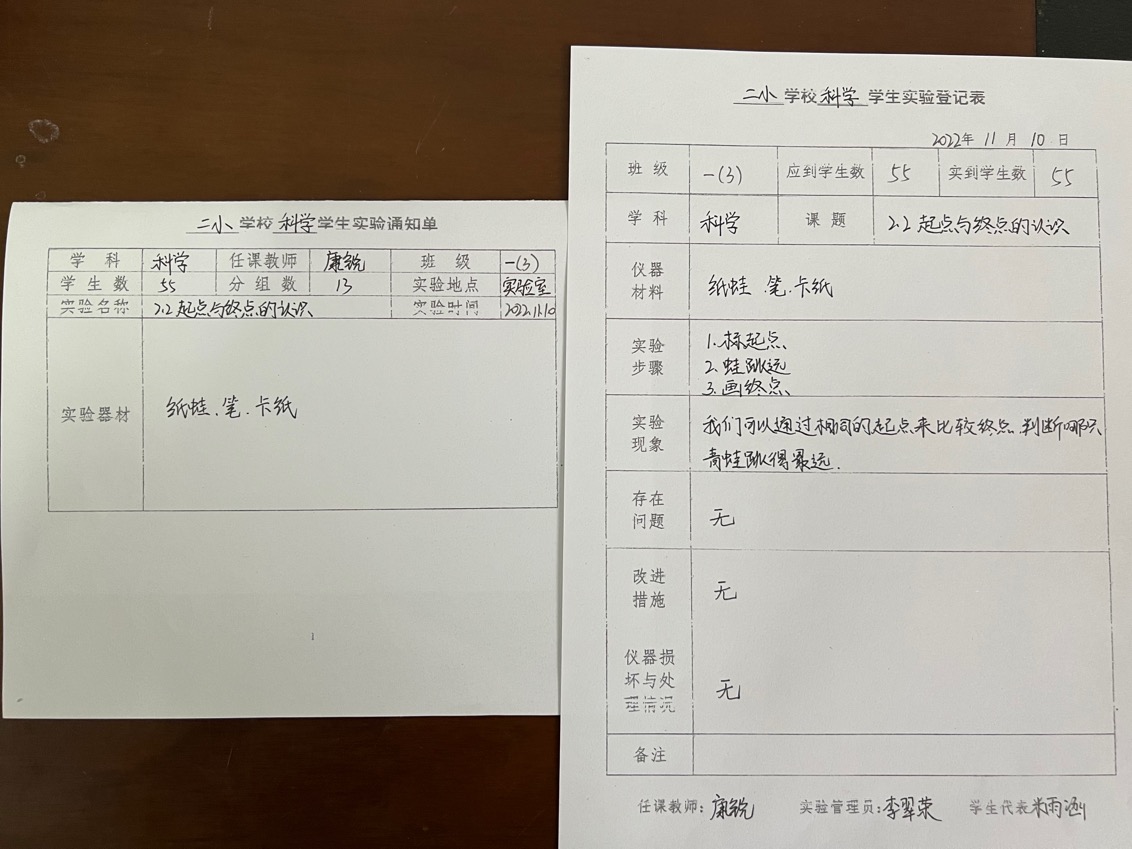 二小 学校 科学 学生实验通知单
学科 科学 任课教师 康锐 班级 一(3)
学生数 55 分组数 13 实验地点 实验室
实验名称 2.2 起点与终点的认识 实验时间 2022.11.10
实验器材 纸蛙、笔、卡纸
1
二小 学校 科学 学生实验登记表
2022年 11 月 10 日
班级 一(3) 应到学生数 55 实到学生数 55
学科 科学 课题 2.2 起点与终点的认识
仪器
材料
纸蛙、笔、卡纸
实验
步骤
1.标起点、
2.蛙跳远
3.画终点、
实验
现象
我们可以通过相同的起点来比较终点,判断哪只
青蛙跳得最远.
存在
问题
无
改进
措施
无
仪器损
坏与处
理情况
无
备注
任课教师:康锐 实验管理员:李翠荣 学生代表 雨涵